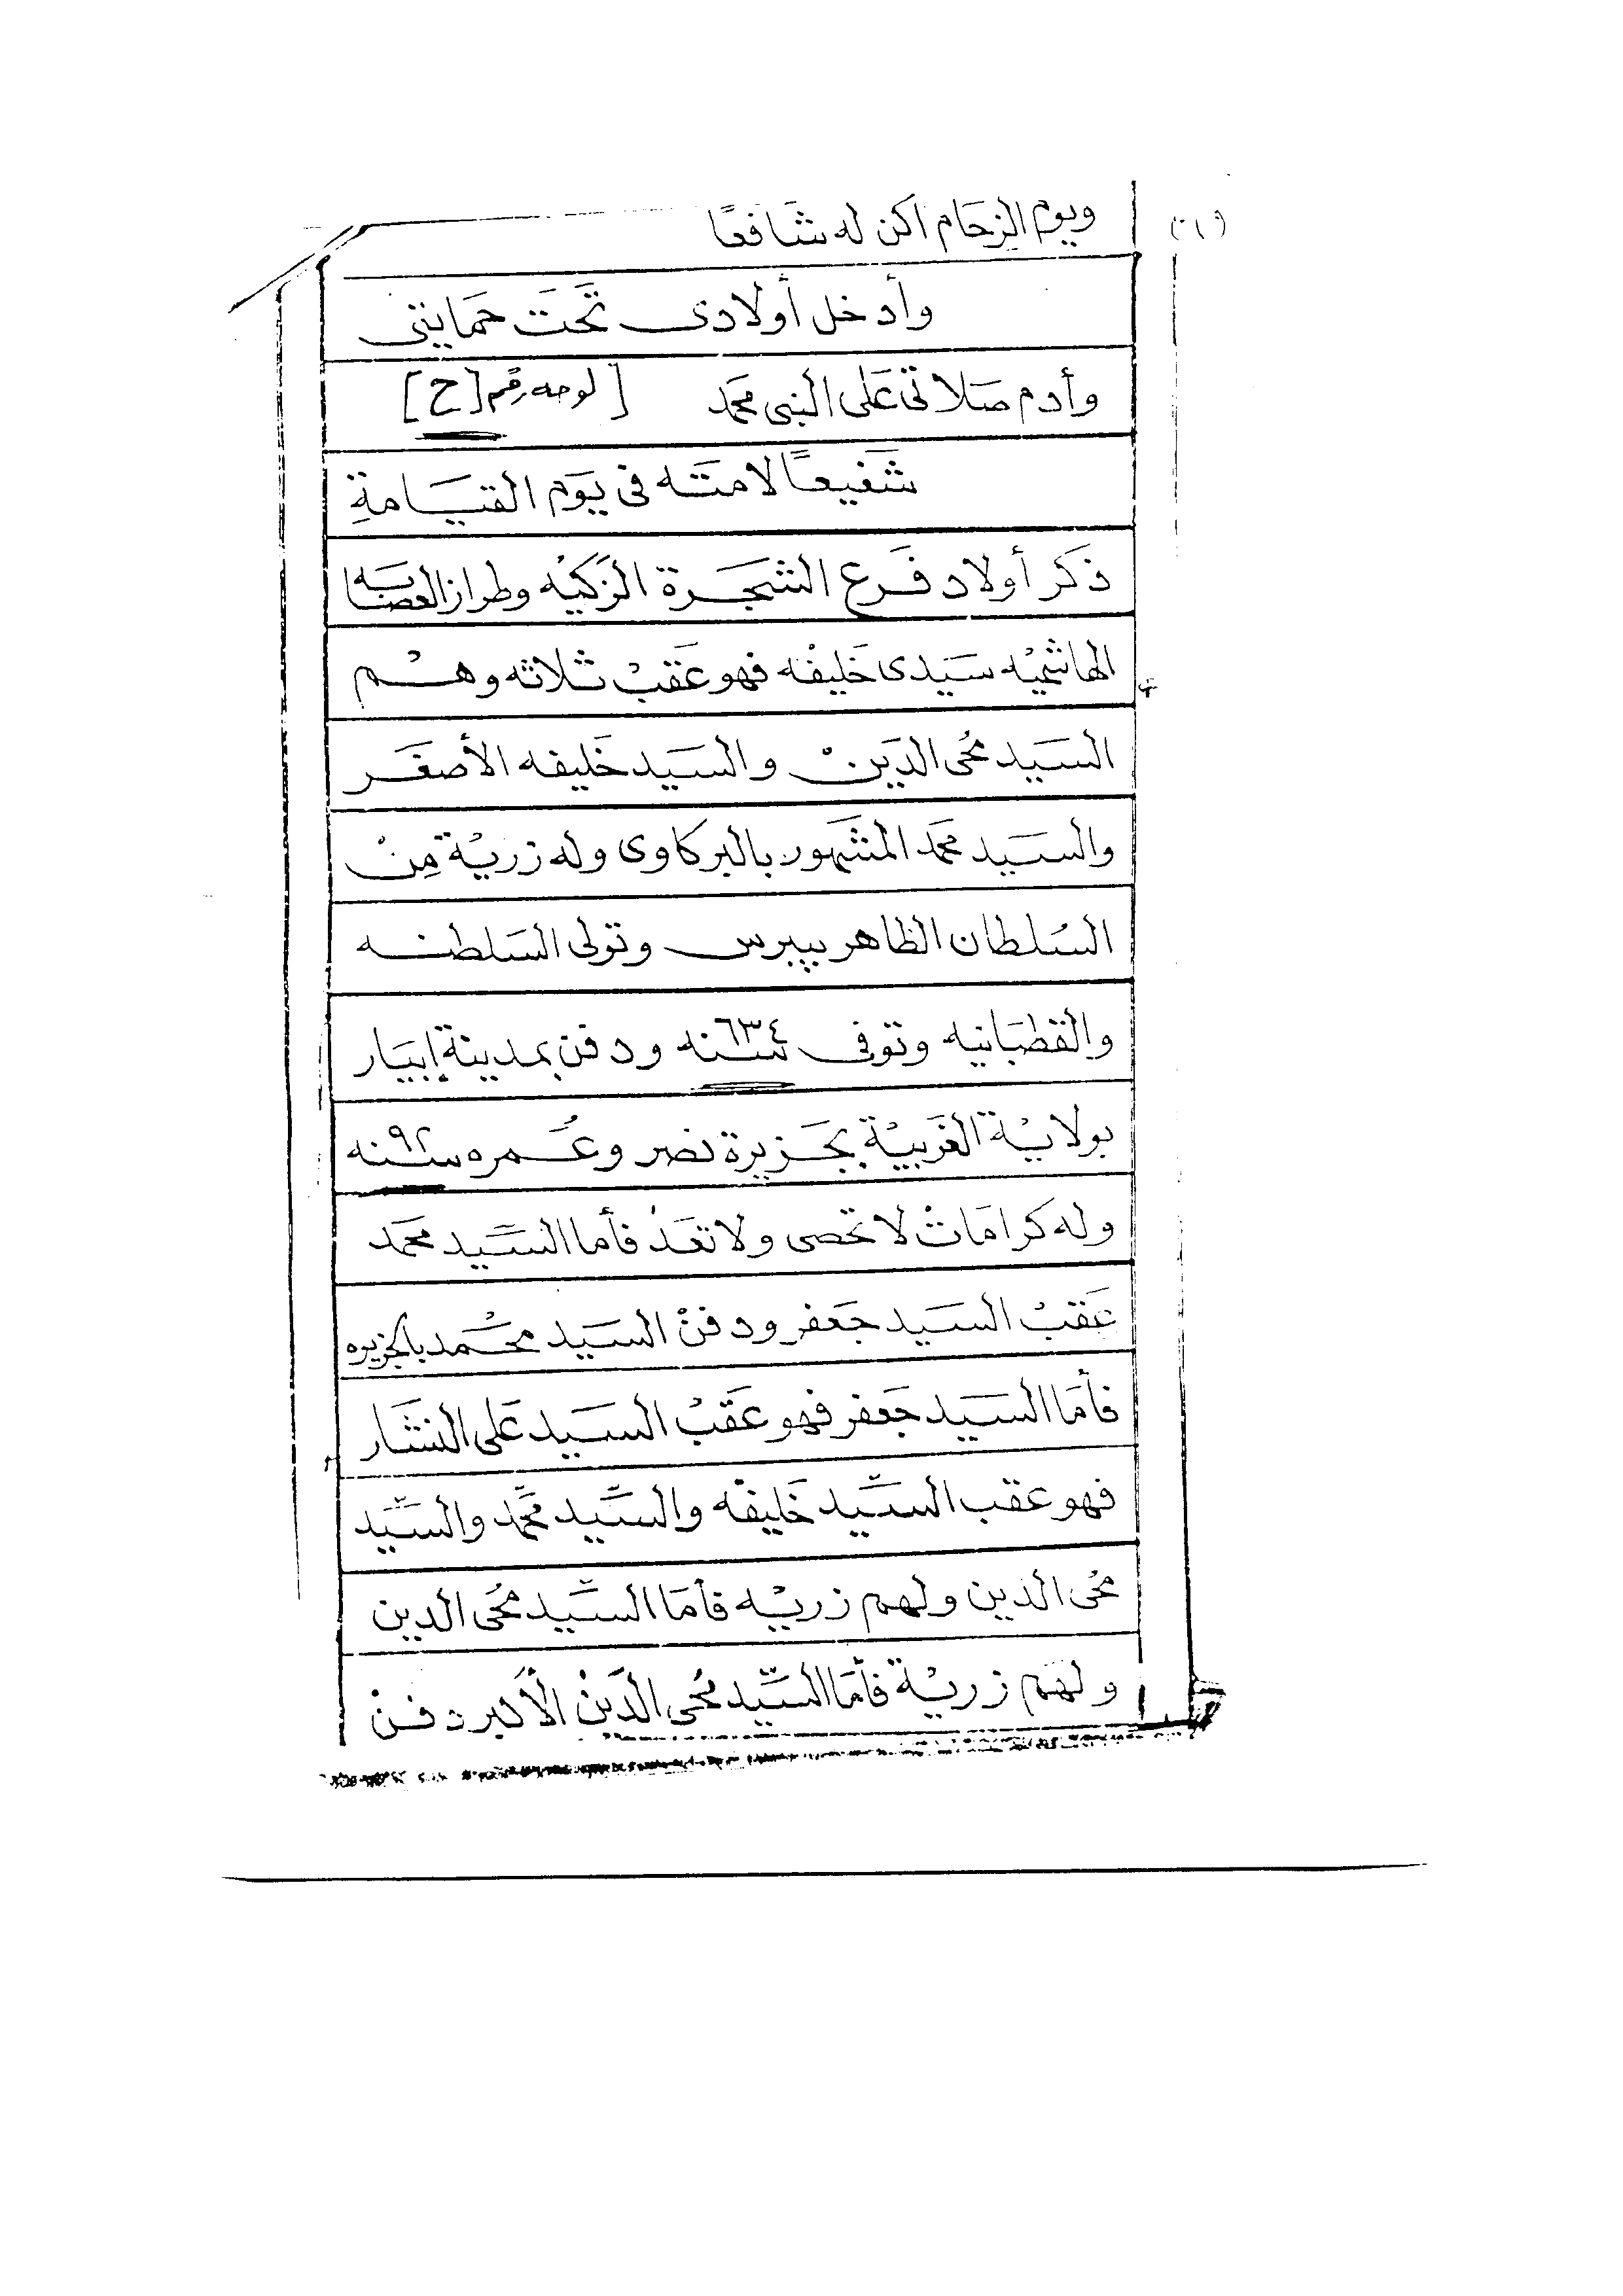 ويوم الزحام أكن له شافعًا
وأدخل أولادى تحت حمايتى
وأدم صلاتى على النبى محمد [لوحه رقم [ح]
شفيعًا لامته فى يوم القيامةِ
ذكر أولاد فرع الشجرة الزكيه وطراز العصابه
الهاشميه سيدى خليفه فهو عقب ثلاثه وهم
السيد محى الدين والسيد خليفه الأصغر
والسيد محمد المشهور بالبركاوى وله زرية مِن
السلطان الظاهر بيبرس وتولى السلطنه
والقطبانيه وتوفى سنه ٦٣٤ ودفن بمدينة إبيار
بولاية الغربية بجزيرة نصر وعُمره ٩٢ سنه
وله كرامات لا تحصى ولا تعد فأما السيد محمد
عقب السيد جعفر ودفن السيد محمد بالجزيره
فأما السيد جعفر فهو عقب السيد على النشار
فهو عقب السيد خليفه والسيد محمد والسيد
محى الدين ولهم زريه فأما السيد محى الدين
ولهم زرية فأما السيد محى الدين الأكبر دفن